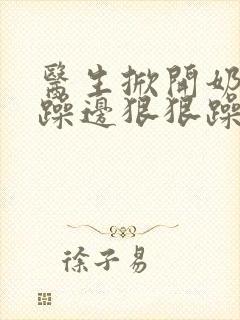 醫生掀開奶
躁邊狠狠躁
徐子易